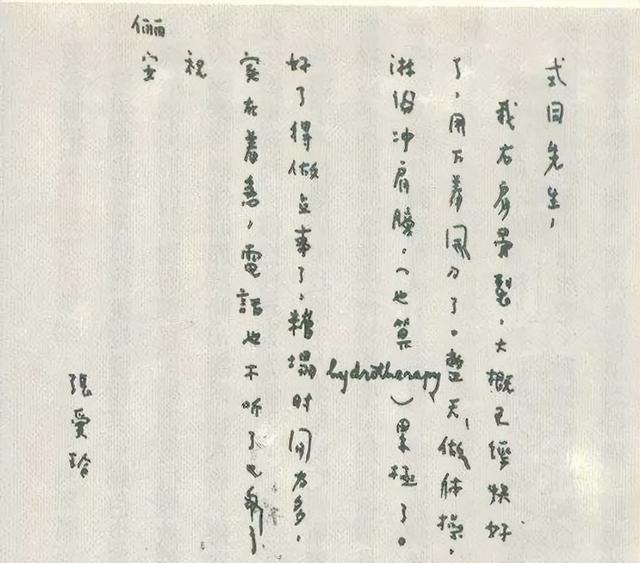 式同先生,
我右肩骨裂,大概已經快好
了,用不着開刀了。整天做体操,
淋浴冲肩膀,(也算hydrotherapy)累極了。
好了得做点事了,糟塌时间太多,
实在着急,電話也不听了
祝
儷安
張愛玲